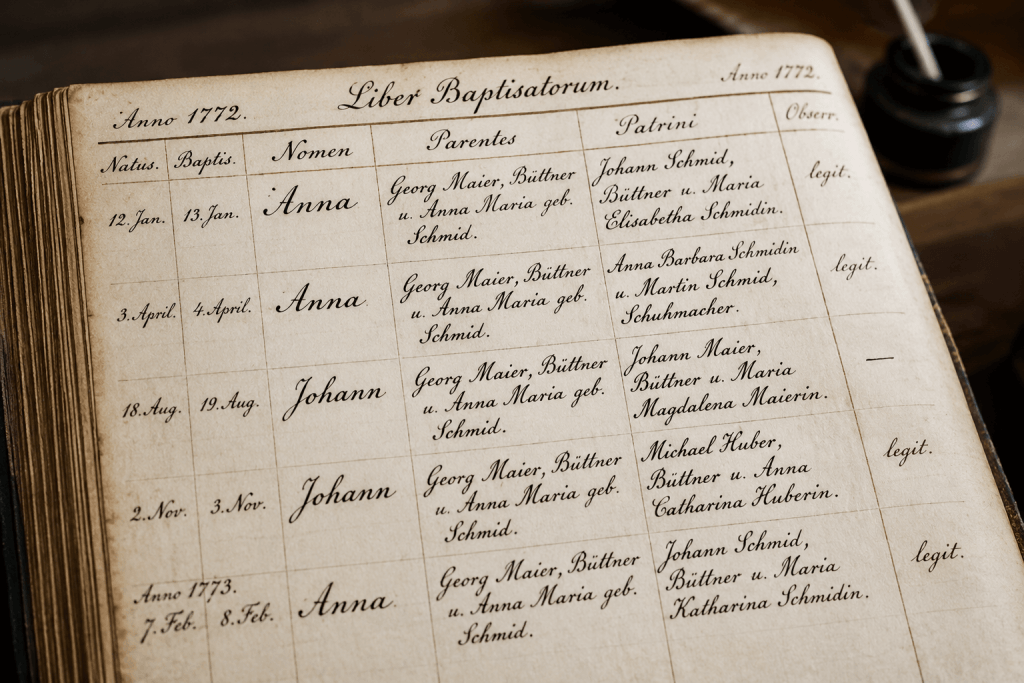 Anno 1772.
Liber Baptisatorum.
Anno 1772.
Natus. Baptis. Nomen Parentes Patrini Observ.
12. Jan. 13. Jan. Anna
Georg Maier, Büttner
u. Anna Maria geb.
Schmid.
Johann Schmid,
Büttner u. Maria
Elisabetha Schmidin.
legit.
3. April. 4. April. Anna
Georg Maier, Büttner
u. Anna Maria geb.
Schmid.
Anna Barbara Schmidin
u. Martin Schmid,
Schuhmacher.
legit.
18. Aug. 19. Aug. Johann
Georg Maier, Büttner
u. Anna Maria geb.
Schmid.
Johann Maier,
Büttner u. Maria
Magdalena Maierin.
—
2. Nov. 3. Nov. Johann
Georg Maier, Büttner
u. Anna Maria geb.
Schmid.
Michael Huber,
Büttner u. Anna
Catharina Huberin.
legit.
Anno 1773.
7. Feb. 8. Feb. Anna
Georg Maier, Büttner
u. Anna Maria geb.
Schmid.
Johann Schmid,
Büttner u. Maria
Katharina Schmidin.
legit.